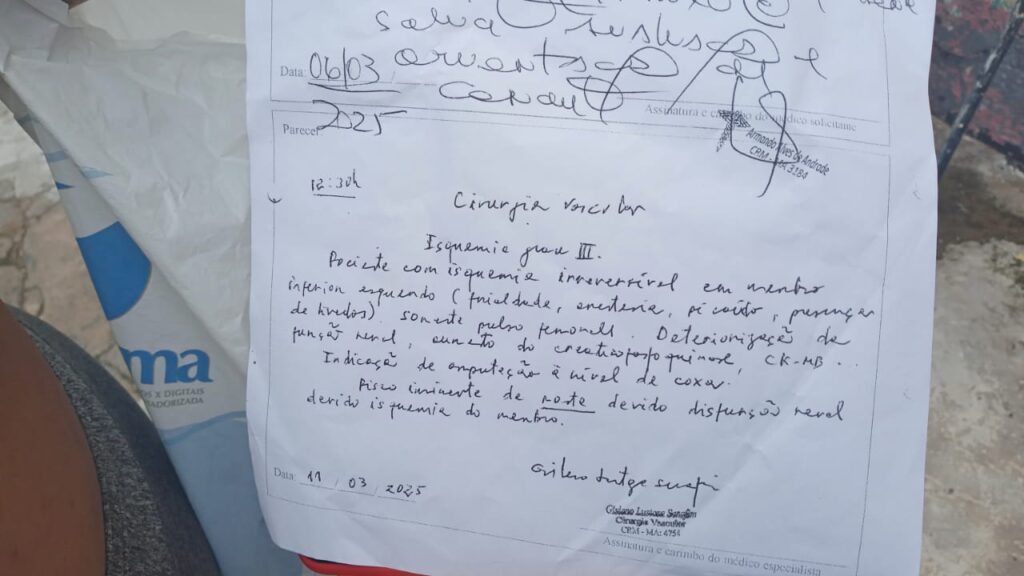 salva
e
Data: 06/03
2025
Assinatura e carimbo do médico solicitante
Armando Alves de Andrade
CRM-MA 3184
Parecer
12:30h
Cirurgia vascular
Isquemia grau III.
Paciente com isquemia irreversível em membro
inferior esquerdo (frialdade, anestesia, pé caído, presença
de livedos). Somente pulso femoral. Deteriorização da
função renal, aumento do creatinofosfoquinase, CK-MB ..
Indicação de amputação à nível de coxa.
Risco iminente de morte devido disfunção renal
devido isquemia do membro.
ma
OS X DIGITAIS
ADORIZADA
Data: 11 / 03 / 2025
Gislano Lustosa Serafim
Cirurgia Vascular
CRM - MA: 4754
Assinatura e carimbo do médico especialista